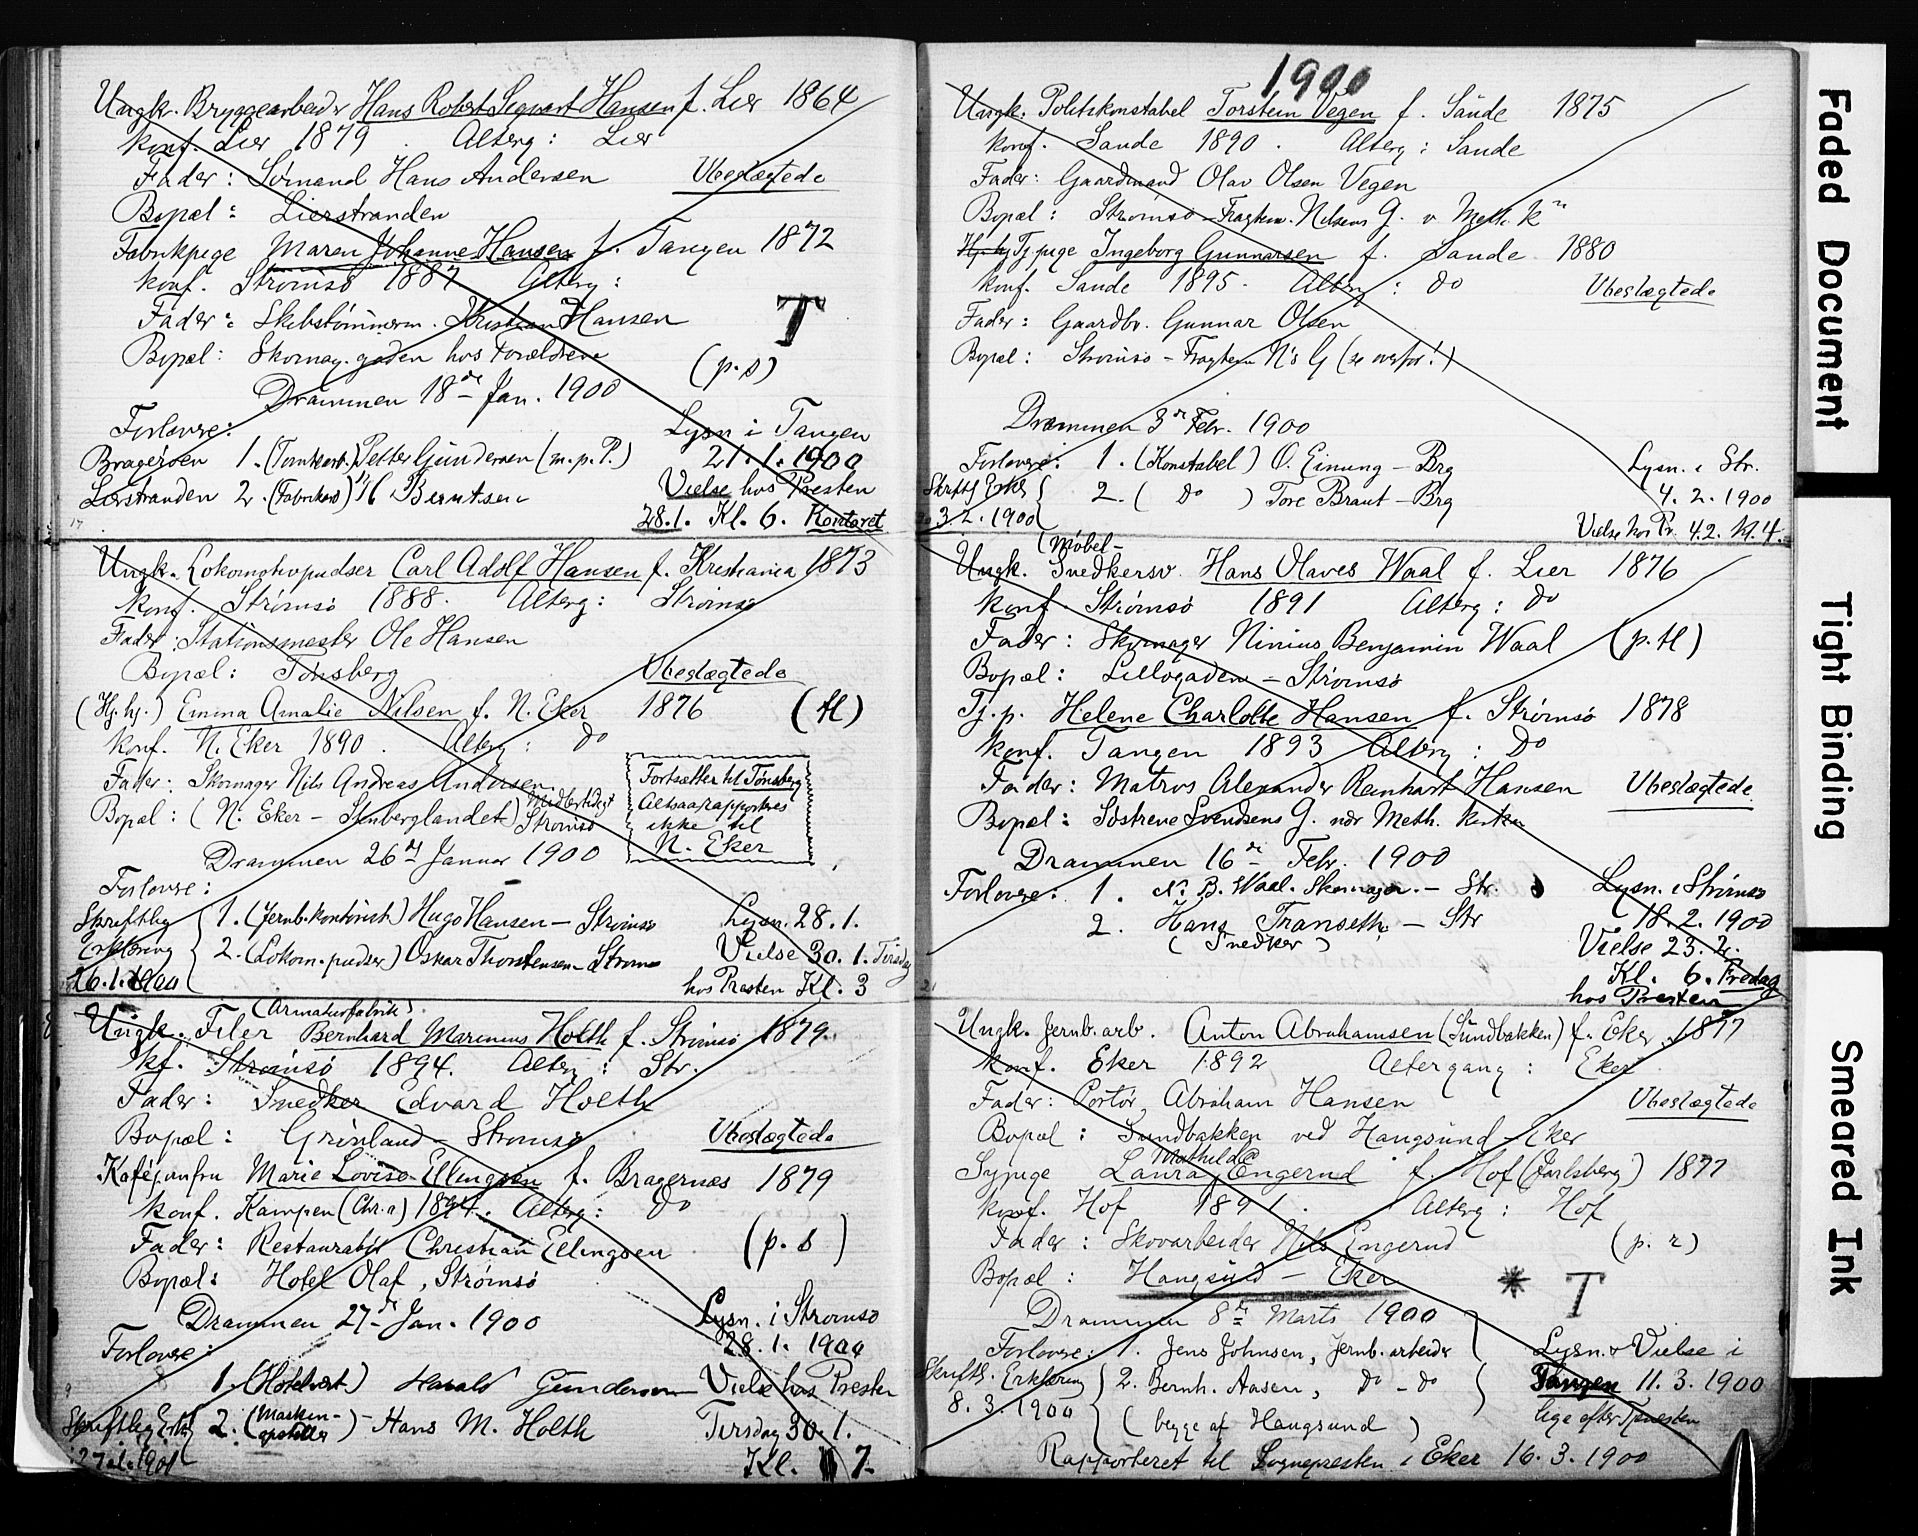 Ungk. Bryggearbeider Hans Robert Segvart Hansen f. Lier 1864
konf. Lier 1879. Alterg: Lier
Fader: Sömand Hans Andersen Ubeslægtede
Bopæl: Lierstranden
Fabrikpige Maren Johanne Hansen f. Tangen 1872
konf. Strömsö 1887 Alterg:
Fader: Skibstömmerm. Kristian Hansen T
Bopæl: Skomag. gaden hos Forældrene
(p. s)
Drammen 18de Jan. 1900
Forlovere: Lysn i Tangen
Bragersen 1. (Tomtearb.) Petter Gundersen (m. p. P.) 21. 1. 1900
Lierstranden 2. (Fabrikarb) Berntsen Vielse hos Presten
28.1. Kl. 6. Kontoret
17
Ungk. Lokomotivpudser Carl Adolf Hansen f. Kristiania 1873
konf. Strømsø 1888. Alterg: Strømsø
Fader: Stationsmester Ole Hansen
Bopæl: Tønsberg Ubeslægtede
(Hj. hj.) Emma Amalie Nilsen f. N. Eker 1876 (H)
konf. N. Eker 1890. Alterg: do
Fader: Skomager Nils Andreas Andersen
Bopæl: (N. Eker - Stenberglandet) Midlertidigt Strømsø
Fortsætter til Tønsberg
Altsaa rapporteres
ikke til
N. Eker
Drammen 26de Januar 1900
Forlovere:
Skriftlig 1. (Jernb.kontorist) Hugo Hansen - Strømsø Lysn. 28.1.
Erklæring 2. (Lokom.pudser) Oskar Thorstensen - Strømsø Vielse 30.1. Tirsdag
26.1.1900 hos Presten Kl. 3
(Armaturfabrik)
Ungk. Filer Bernhard Marinius Holth f. Strømsø 1879.
kf. Strømsø 1894. Alterg: Str.
Fader: Snedker Edvard Holth
Bopæl: Grønland - Strømsø Ubeslægtede
Kaféjomfru Marie Lovise Ellingsen f. Bragernæs 1879
konf. Kampen (Chr.a) 1894. Alterg: do
Fader: Restauratør Christian Ellingsen (p. s)
Bopæl: Hotel Olaf, Strømsø
Drammen 27de Jan. 1900 Lysn. i Strømsø
Forlovere: 28.1. 1900
1. (Hotelvært) Harald Gundersen Vielse hos Presten
Skriftlig Erkl. 2. (Maskin-opstiller) - Hans M. Holth Tirsdag 30.1.
27.1.1900 Kl. 7.
1900
Ungk. Politikonstabel Torstein Vegen f. Sande 1875
konf. Sande 1890. Alterg: Sande
Fader: Gaardmand Olav Olsen Vegen
Bopæl: Strømsø - Fragtem. Nilsens G. v. Meth. K
Tj.pige Ingeborg Gunnarsen f. Sande 1880
konf. Sande 1895. Alterg: do Ubeslægtede
Fader: Gaardbr. Gunnar Olsen
Bopæl: Strømsø - Fragtem N's G (se ovenfor!)
Drammen 3de Febr. 1900
Forlovere: 1. (Konstabel) O. Einung - Brg Lysn. i Str.
Skriftl Erkl 2. (do) Tore Braut - Brg 4. 2. 1900
3. 2. 1900 Vielse hos Pr. 4.2. Kl. 4.
(Møbel-
Ungk. Snedkersv. Hans Olaves Waal f. Lier 1876
konf. Strømsø 1891 Alterg: do
Fader: Skomager Ninius Benjamin Waal (p. H)
Bopæl: Lillogaden - Strømsø
Tj. p. Helene Charlotte Hansen f. Strømsø 1878
konf. Tangen 1893 Alterg: Do
Fader: Matros Alexander Reinhart Hansen Ubeslægtede
Bopæl: Søstrene Svendsens G. nær Meth. kirke
Drammen 16de Febr. 1900
Forlovere: 1. N. B. Waal. Skomager. - Str. Lysn. i Strømsø
2. Hans Transeth - Str 18.2.1900
(Snedker) Vielse 23.2.
Kl. 6. Fredag
hos Presten
21
Ungk. Jernb.arb. Anton Abrahamsen (Sundbakken) f. Eker 1877
konf. Eker 1892 Altergang: Eker
Fader: Portør Abraham Hansen Ubeslægtede
Bopæl: Sundbakken ved Hangsund - Eker
Sypige Laura Mathilde Engerud f. Hof (Jarlsberg) 1877
konf. Hof 1891. Alterg: Hof
Fader: Skovarbeider Nils Engerud (p. r)
Bopæl: Hangsund - Eker * T
Drammen 8de Marts 1900
Forlovere: 1. Jens Johnsen, Jernb.arbeider Lysn. & Vielse i
Skriftl. Erklæring 2. Bernh. Aasen, do - do Tangen 11. 3. 1900
8. 3. 1900 (begge af Haugsund) lige efter Tjenesten
Rapporteret til Sognepresten i Eker 16. 3. 1900
Faded Document
Tight Binding
Smeared Ink